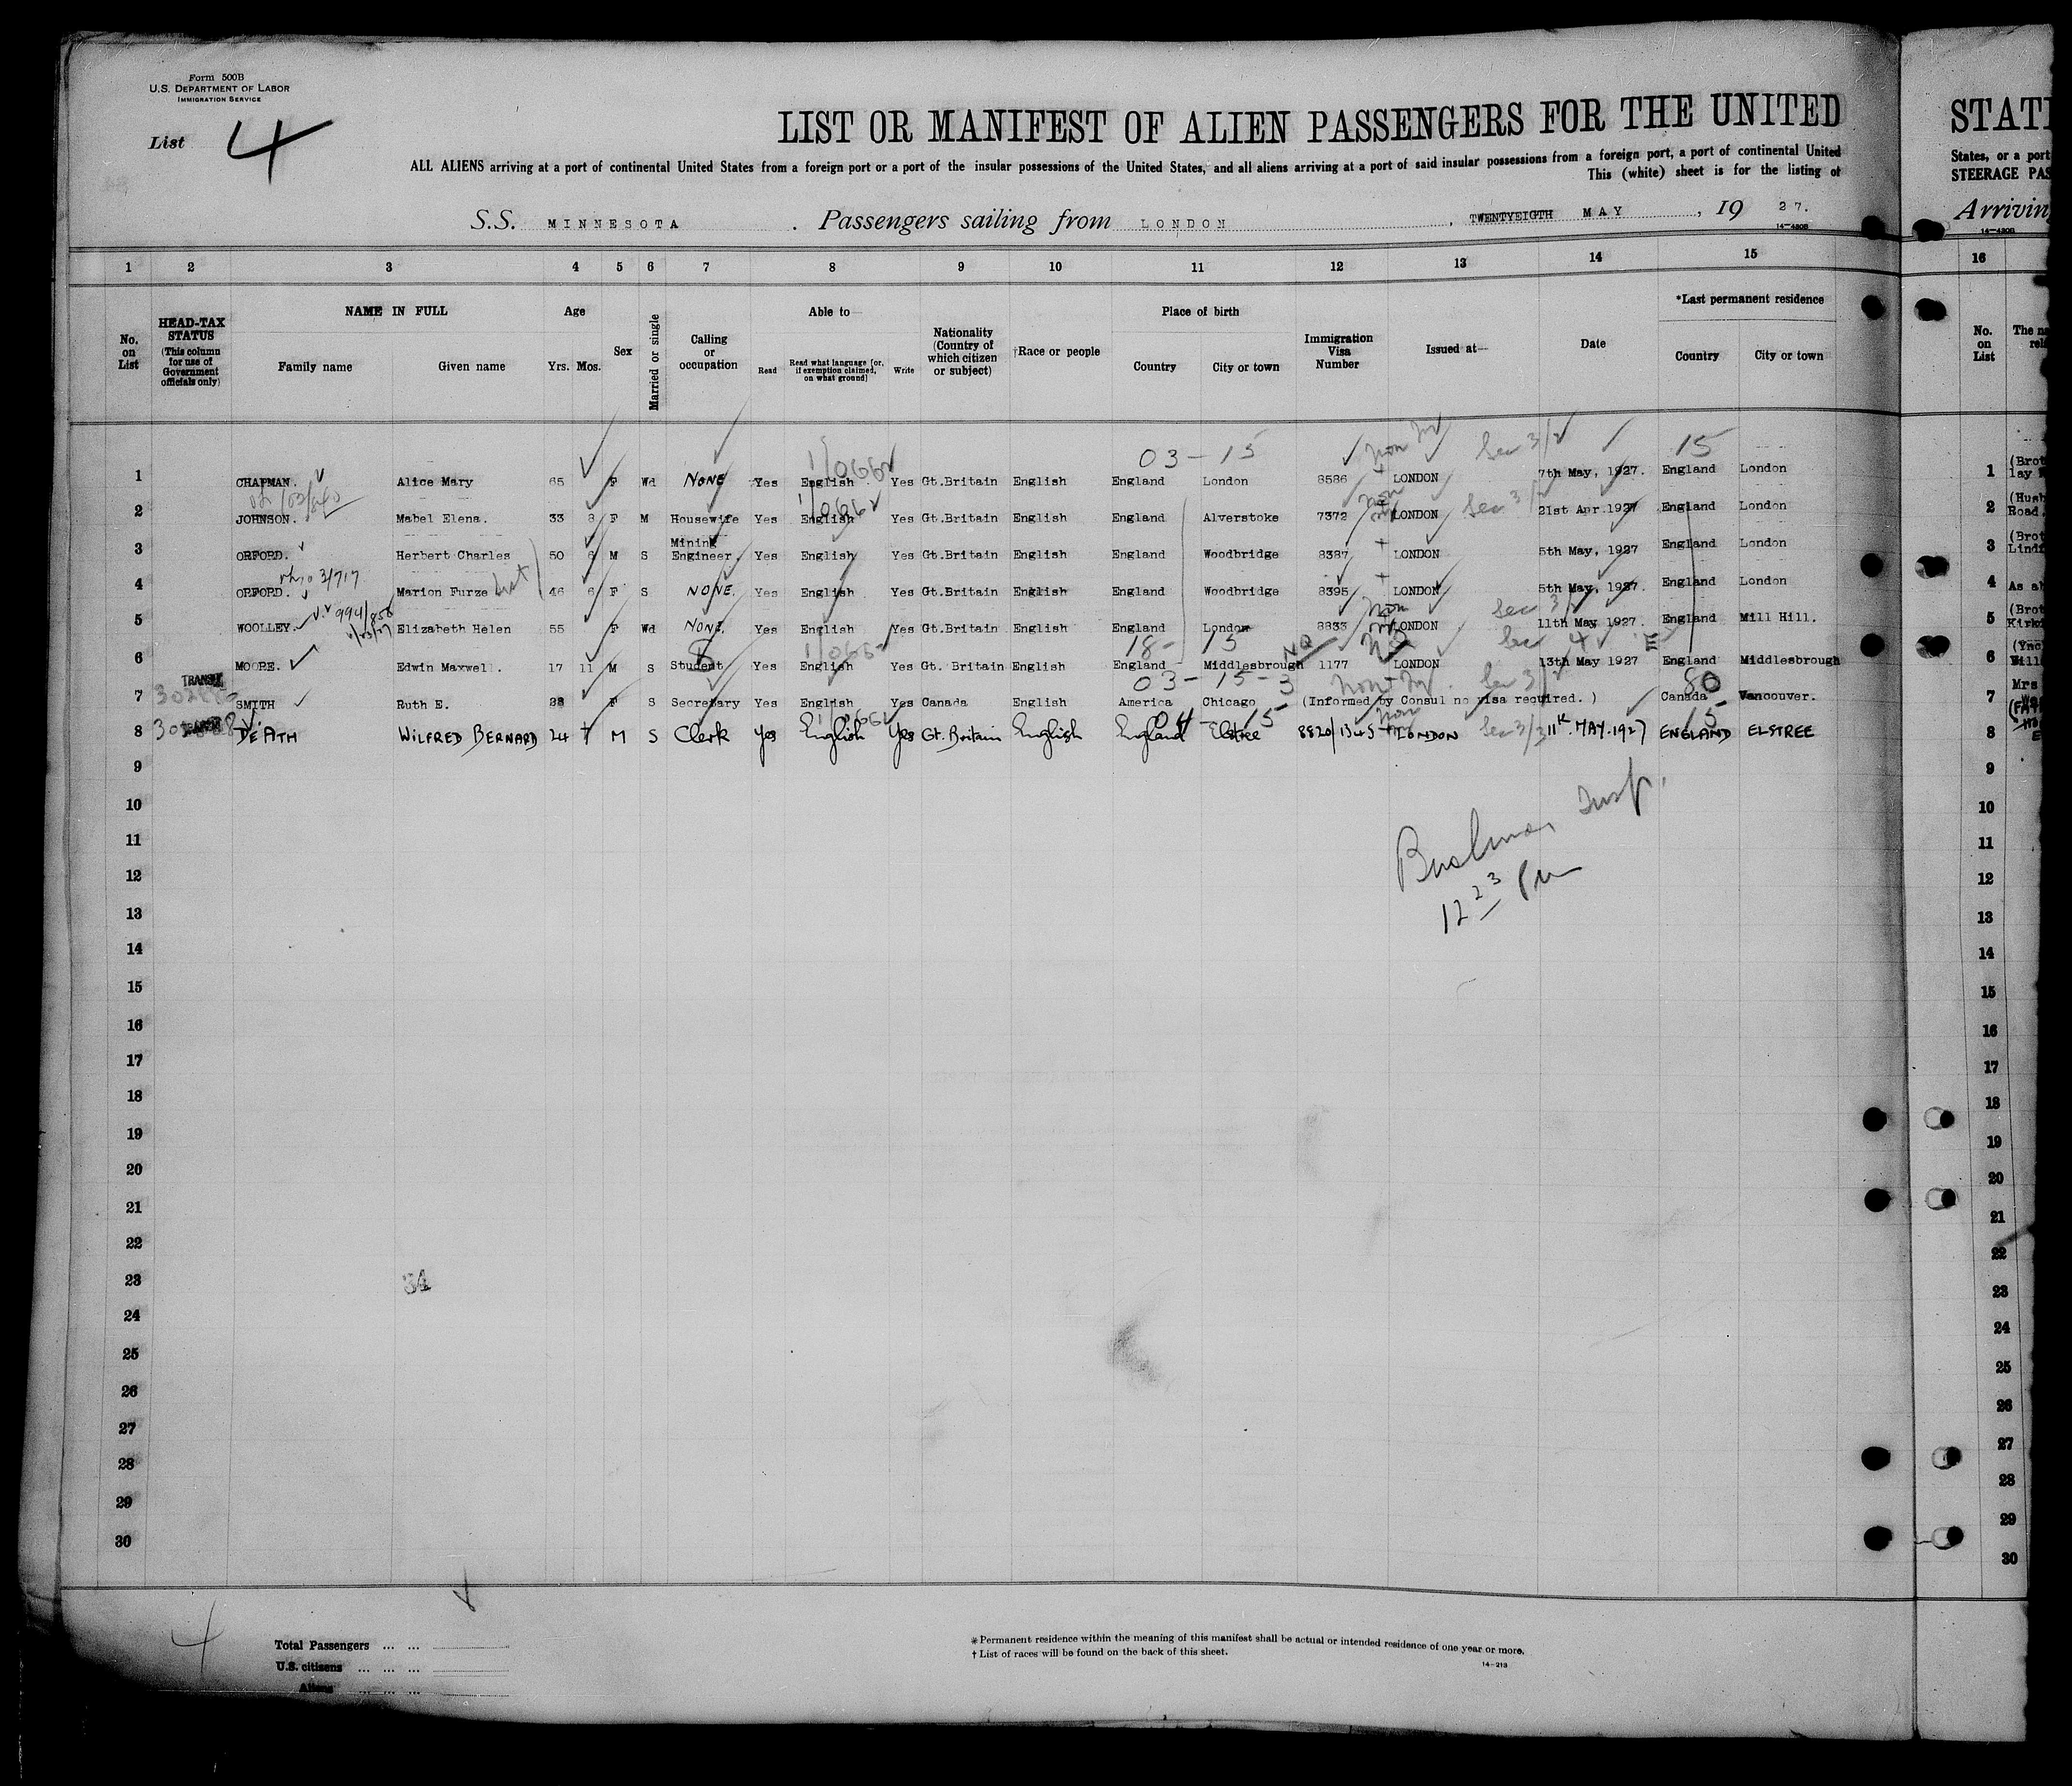 Form 500B
U.S. DEPARTMENT OF LABOR
IMMIGRATION SERVICE
List 4
LIST OR MANIFEST OF ALIEN PASSENGERS FOR THE UNITED
ALL ALIENS arriving at a port of continental United States from a foreign port or a port of the insular possessions of the United States, and all aliens arriving at a port of said insular possessions from a foreign port, a port of continental United
This (white) sheet is for the listing of
S.S. MINNESOTA . Passengers sailing from LONDON , TWENTYEIGTH MAY , 19 27.
14-480B
1 2 3 4 5 6 7 8 9 10 11 12 13 14 15
No. on List
HEAD-TAX STATUS (This column for use of Government officials only)
NAME IN FULL
Family name Given name
Age
Yrs. Mos.
Sex
Married or single
Calling or occupation
Able to
Read Read what language [or, if exemption claimed, on what ground] Write
Nationality (Country of which citizen or subject)
†Race or people
Place of birth
Country City or town
Immigration Visa Number
Issued at
Date
*Last permanent residence
Country City or town
03-15 Sec 3/2 15
1 CHAPMAN. Alice Mary 65 F Wd NONE Yes English Yes Gt.Britain English England London 8586 LONDON 7th May, 1927. England London
2 JOHNSON. Mabel Elena. 33 8 F M Housewife Yes English Yes Gt.Britain English England Alverstoke 7372 LONDON 21st Apr.1927 England London
3 ORFORD. Herbert Charles 50 6 M S Mining Engineer. Yes English Yes Gt.Britain English England Woodbridge 8387 LONDON 5th May, 1927 England London
4 ORFORD. Marion Furze 46 6 F S NONE. Yes English Yes Gt.Britain English England Woodbridge 8395 LONDON 5th May, 1927. England London
5 WOOLLEY. Elizabeth Helen 55 F Wd NONE. Yes English Yes Gt.Britain English England London 8833 LONDON 11th May, 1927 England Mill Hill.
18-15
6 MOORE. Edwin Maxwell. 17 11 M S Student Yes English Yes Gt. Britain English England Middlesbrough NQ 1177 LONDON 13th May 1927 England Middlesbrough
TRANSIT 03-15-3 80
7 SMITH Ruth E. 28 F S Secretary Yes English Yes Canada English America Chicago (Informed by Consul no visa required. ) Canada Vancouver.
04-15 15
8 De'ATH WILFRED BERNARD 24 7 M S Clerk Yes English Yes Gt. Britain English England Elstree 8820/1345 LONDON Sec 3/3 11th MAY.1927 ENGLAND ELSTREE
9
10
11
12
13
14
15
16
17
18
19
20
21
22
23
24
25
26
27
28
29
30
Insp.
12 23 Pm
34
4
Total Passengers ... ...
U.S. citizens ... ... ...
Aliens ... ... ...
* Permanent residence within the meaning of this manifest shall be actual or intended residence of one year or more.
† List of races will be found on the back of this sheet.
14-213
STAT
States, or a port
STEERAGE PAS
Arrivin
14-480B
16
No. on List
The na
rel
1 (Brot
2 (Husb
Road.
3 (Brot
Lindf
4 As ab
5 (Brot
Kirki
6
7 Mrs
8
9
10
11
12
13
14
15
16
17
18
19
20
21
22
23
24
25
26
27
28
29
30